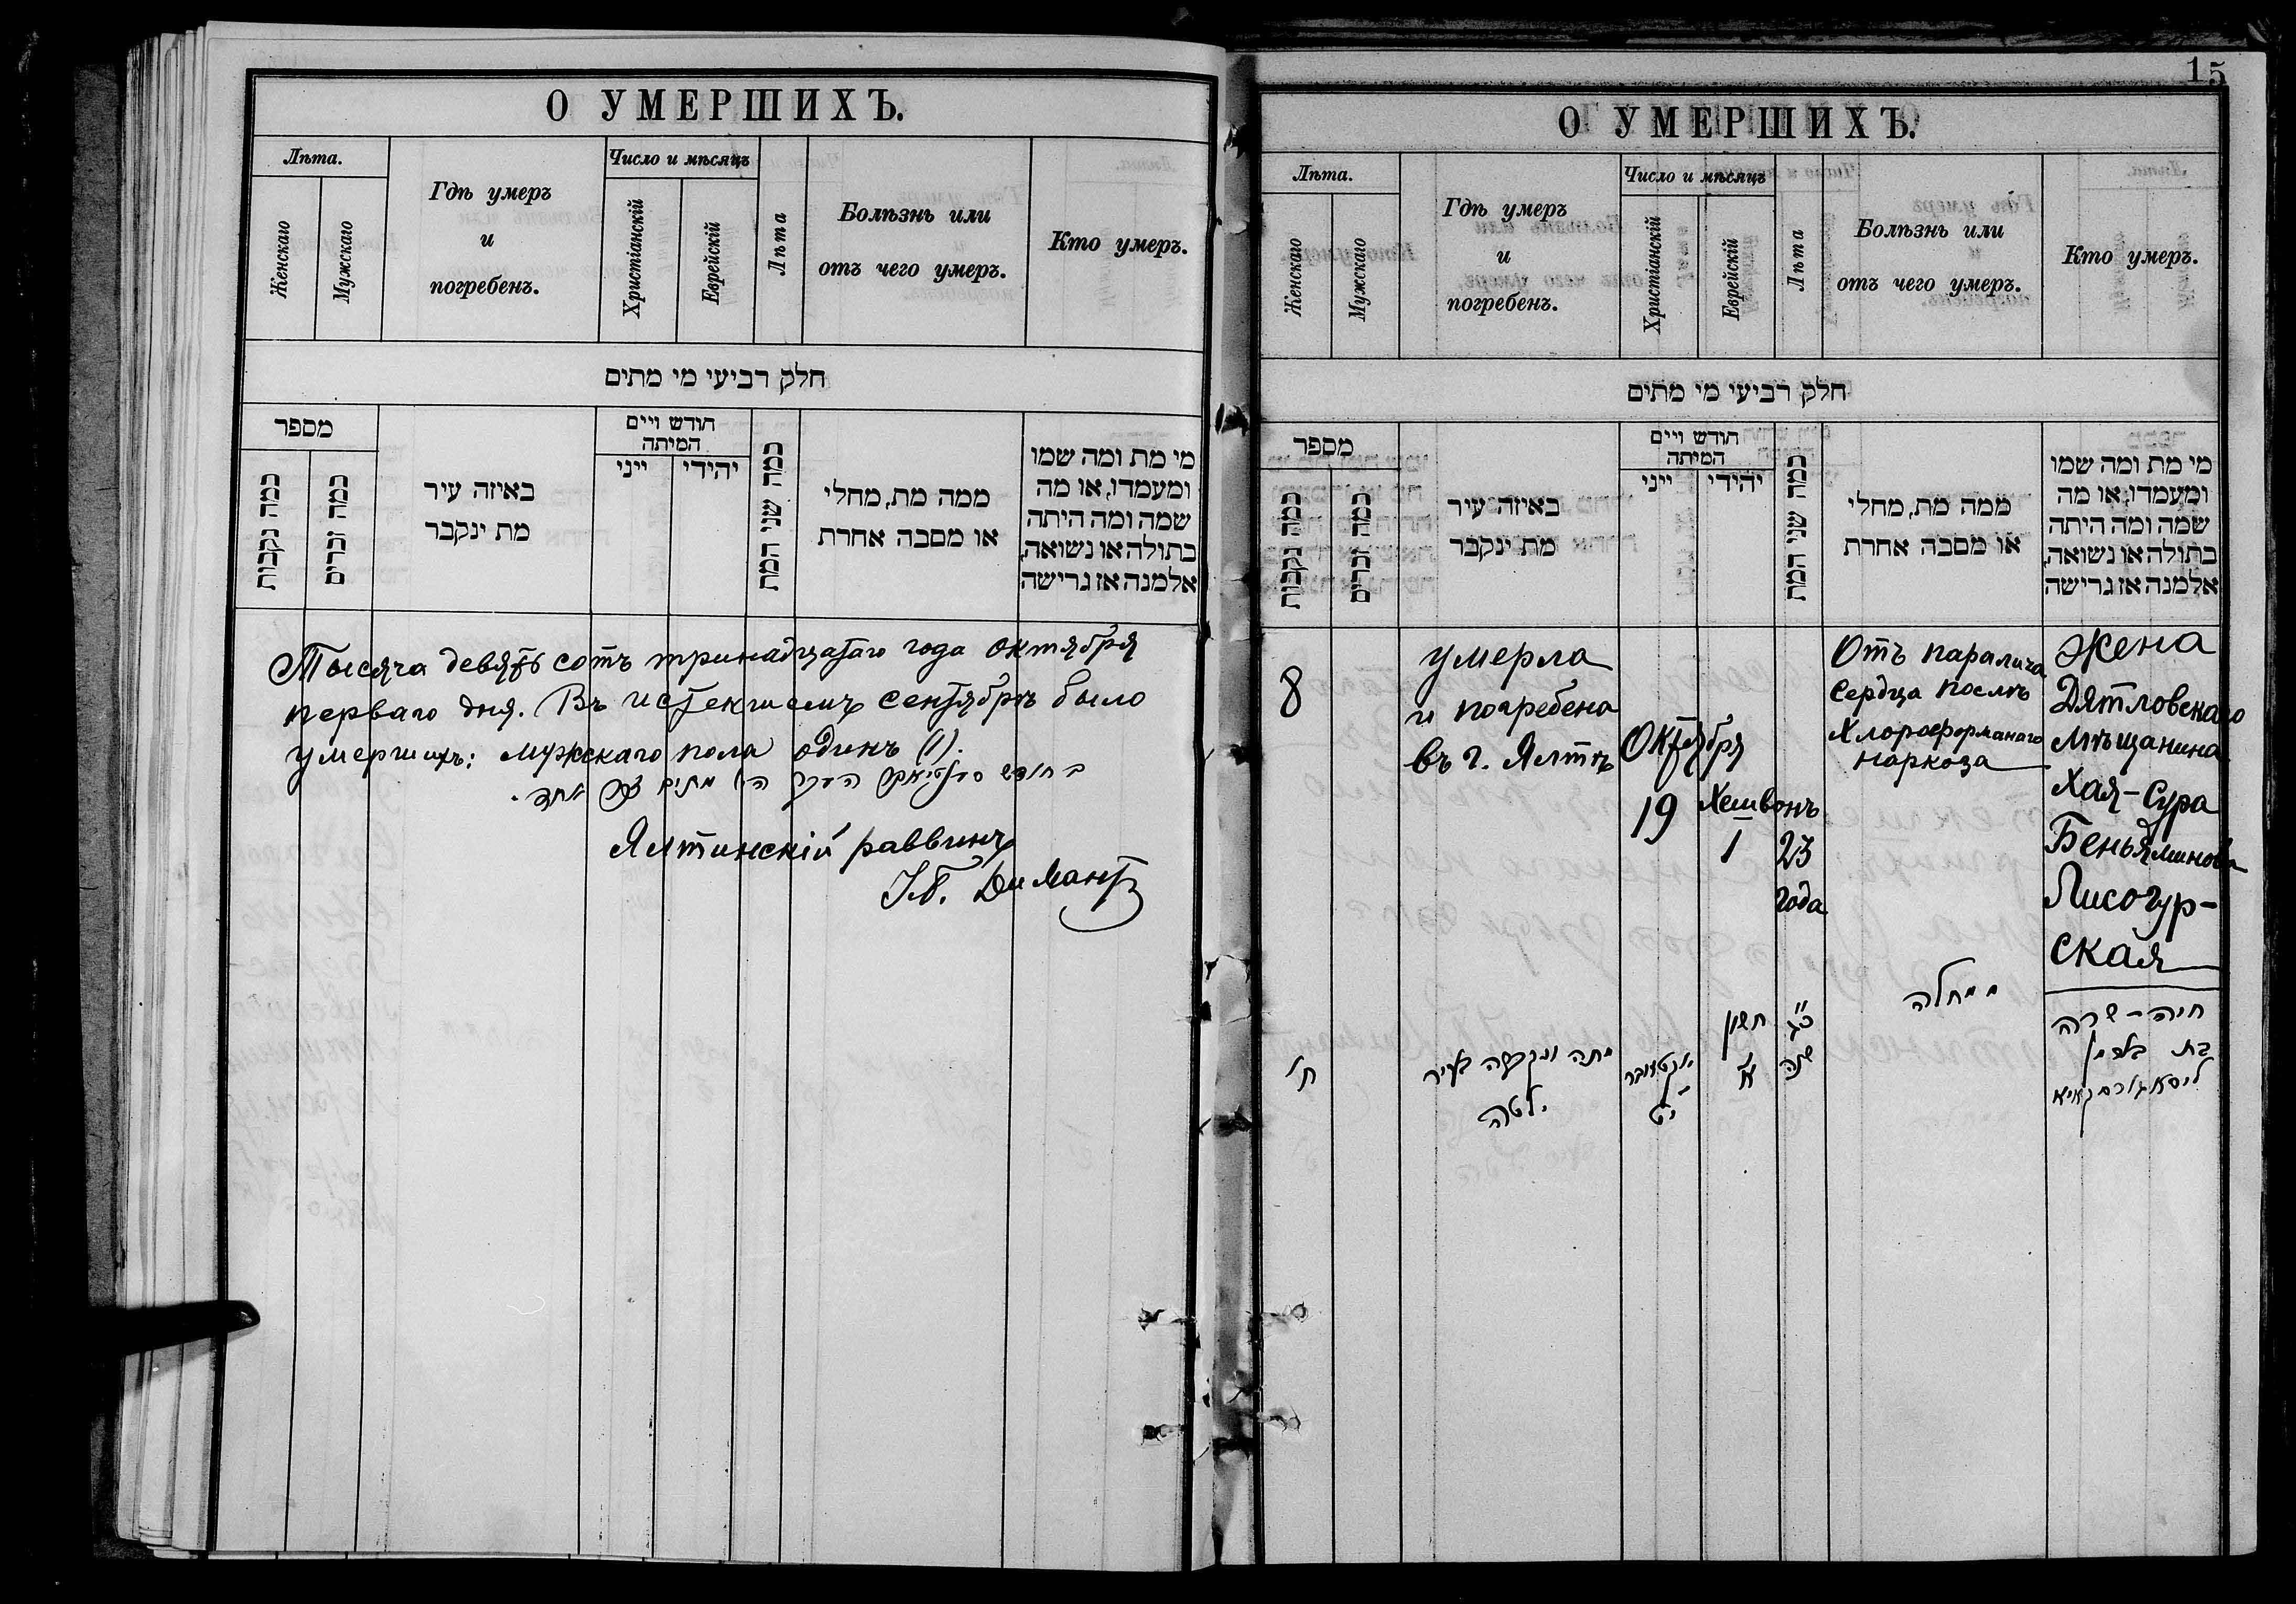 О УМЕРШИХЪ.
Лѣта.
Женскаго
Мужскаго
Гдѣ умеръ
и
погребенъ.
Число и мѣсяцъ
Христіанскій
Еврейскій
Лѣта
Болѣзнь или
отъ чего умеръ.
Кто умеръ.
חלק רביעי מי מתים
מספר
כמה נקבות
כמה זכרים
באיזה עיר
מת ינקבר
חודש ויים
המיתה
ייני
יהידי
כמה שני המת
ממה מת, מחלי
או מסבה אחרת
מי מת ומה שמו
ומעמדו, או מה
שמה ומה היתה
בתולה או נשואה,
אלמנה אז גרישה
Тысяча девятьсотъ тринадцатаго года октября
перваго дня. Въ истекшемъ сентябрѣ было
умершихъ: мужскаго пола одинъ (1).
Ялтинскій раввинъ
15
О УМЕРШИХЪ.
Лѣта.
Женскаго
Мужскаго
Гдѣ умеръ
и
погребенъ.
Число и мѣсяцъ
Христіанскій
Еврейскій
Лѣта
Болѣзнь или
отъ чего умеръ.
Кто умеръ.
חלק רביעי מי מתים
מספר
כמה נקבות
כמה זכרים
באיזה עיר
מת ינקבר
חודש ויים
המיתה
ייני
יהידי
כמה שני המת
ממה מת, מחלי
או מסבה אחרת
מי מת ומה שמו
ומעמדו, או מה
שמה ומה היתה
בתולה או נשואה,
אלמנה אז גרישה
8
умерла
и погребена
въ г. Ялтѣ
Октября
19
Хешвонъ
1
23
года
Отъ паралича
сердца послѣ
Хлороформанаго
наркоза
Жена
Дятловскаго
мѣщанина
Хая-Сура
Беньяминова
Лисогур-
ская
ח'
מתה ונקברה בעיר
ילטה
אקטובר
יט
חשון
א'
כג
שנה
ממחלה
חיה-שרה
בת בנימן
ליסאגורסקאיא